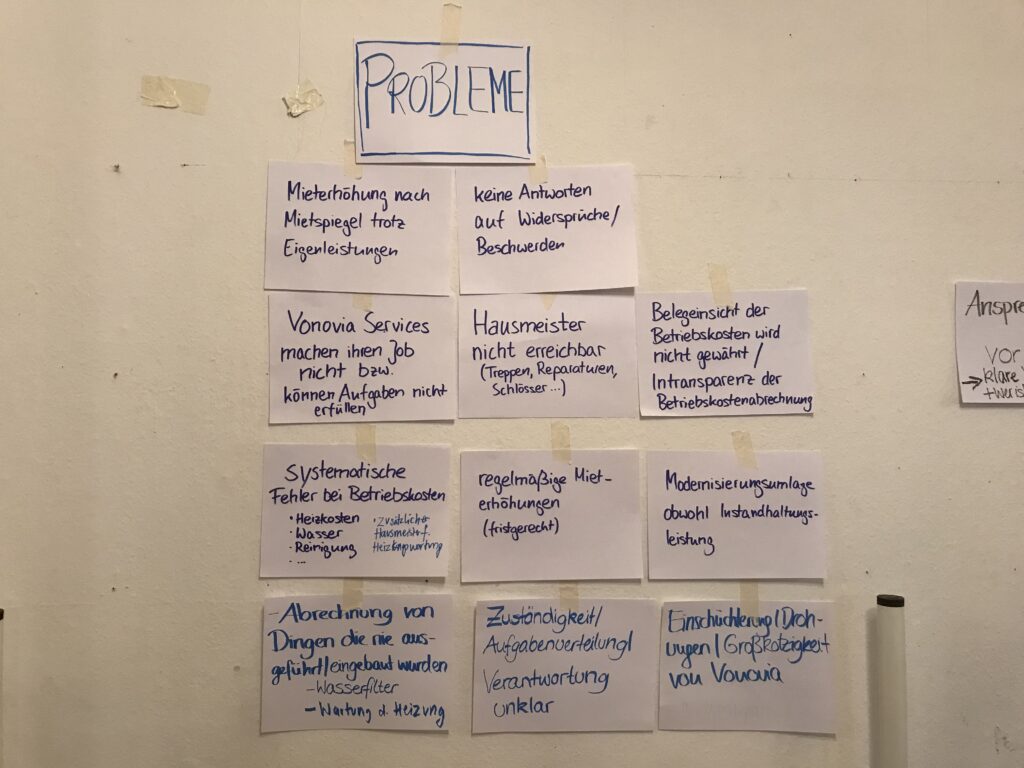 PROBLEME
Mieterhöhung nach
Mietspiegel trotz
Eigenleistungen
keine Antworten
auf Widersprüche/
Beschwerden
Vonovia Services
machen ihren Job
nicht bzw.
können Aufgaben nicht
erfüllen
Hausmeister
nicht erreichbar
(Treppen, Reparaturen,
Schlösser...)
Belegeinsicht der
Betriebskosten wird
nicht gewährt/
Intransparenz der
Betriebskostenabrechnung
Systematische
Fehler bei Betriebskosten
· Heizkosten
· Wasser
· Reinigung
· ...
· Zusätzlicher
Hausmeister f.
regelmäßige Miet-
erhöhungen
(fristgerecht)
Modernisierungsumlage
obwohl Instandhaltungs-
leistung
- Abrechnung von
Dingen die nie aus-
geführt/eingebaut wurden
- Wasserfilter
- Wartung d. Heizung
Zuständigkeit/
Aufgabenverteilung/
Verantwortung
unklar
Einschüchterung/Droh-
ungen/Großkotzigkeit
von Vonovia
Anspre
vor
→ klare